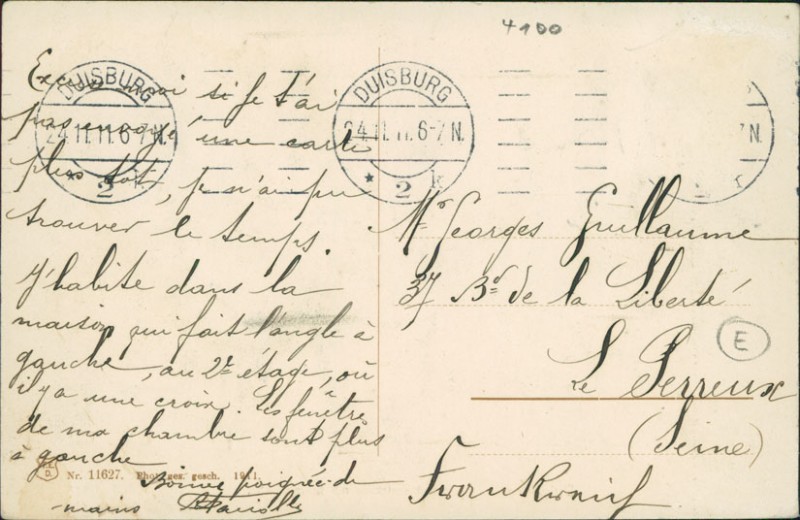 4100
Excuse moi si je t'ai
pas envoyé une carte
plus tôt, je n'ai pu
trouver le temps.
J'habite dans la
maison qui fait l'angle à
gauche, au 2e étage, où
il y a une croix. Les fenêtre
de ma chambre sont plus
à gauche
Bonne poignée de
mains
DUISBURG
24.11.11.6-7N.
* 2 k
DUISBURG
24.11.11.6-7N.
* 2 k
7N.
k
Mr Georges Guillaume
37 Bd de la Liberté
Le Perreux
(Seine)
Frankreich
E
Nr. 11627. Phot. ges. gesch. 1911.